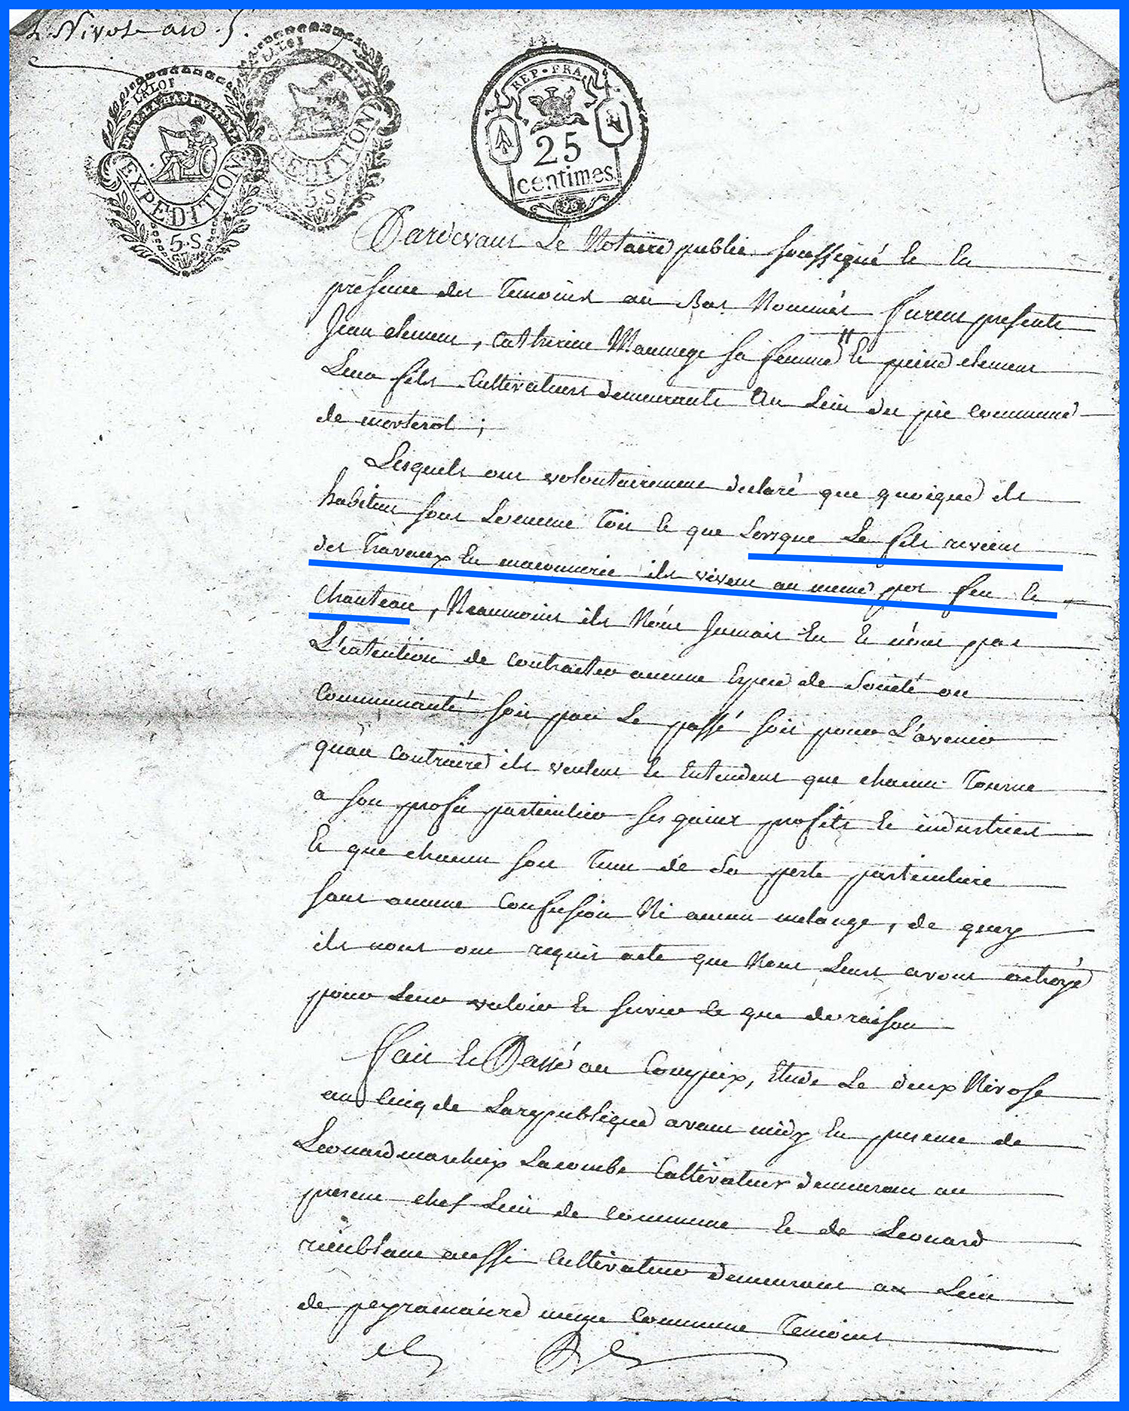 2 Nivose an 5.
LA LOI
EXPEDITION
5.S.
LA LOI
EXPEDITION
5.S.
REP. FRA.
25
centimes
Pardevant Le Notaire public soussigné Et En
presence des Temoins au Bas Nommés furent presents
Jean clement, catherine Maumege sa femme Et pierre clement
Leur fils Cultivateurs demeurants Au Lieu du commune
de monterol ;
Lesquels ont volontairement declaré que quoique ils
habitent sous Le meme Toit Et que Lorsque Le fils revient
des Travaux En maconnerie ils vivent au meme pot feu Et
Chanteau, Neanmoins ils N'ont Jamais Eu Et n'ont pas
L'intention de contracter aucune Espece de Societé ou
Communauté soit par Le passé soit pour L'avenir
qu'au Contraire ils veulent Et Entendent que chacun Tourne
a son profit particulier ses gains profits Et industries
Et que chacun soit Tenu de Sa perte particuliere
sans aucune Confusion Ni aucun melange, de quoy
ils nous ont requis acte que Nous Leurs avons octroyé
pour Leur valoir Et servir Ce que de raison
Fait Et Passé au Compeix, Etude Le deux Nivose
an Cinq de La republique avant midy En presence de
Leonard Lacombe Cultivateur demeurant au
present chef Lieu de commune Et de Leonard
aussi Cultivateur demeurant au Lieu
de meme Commune Temoins